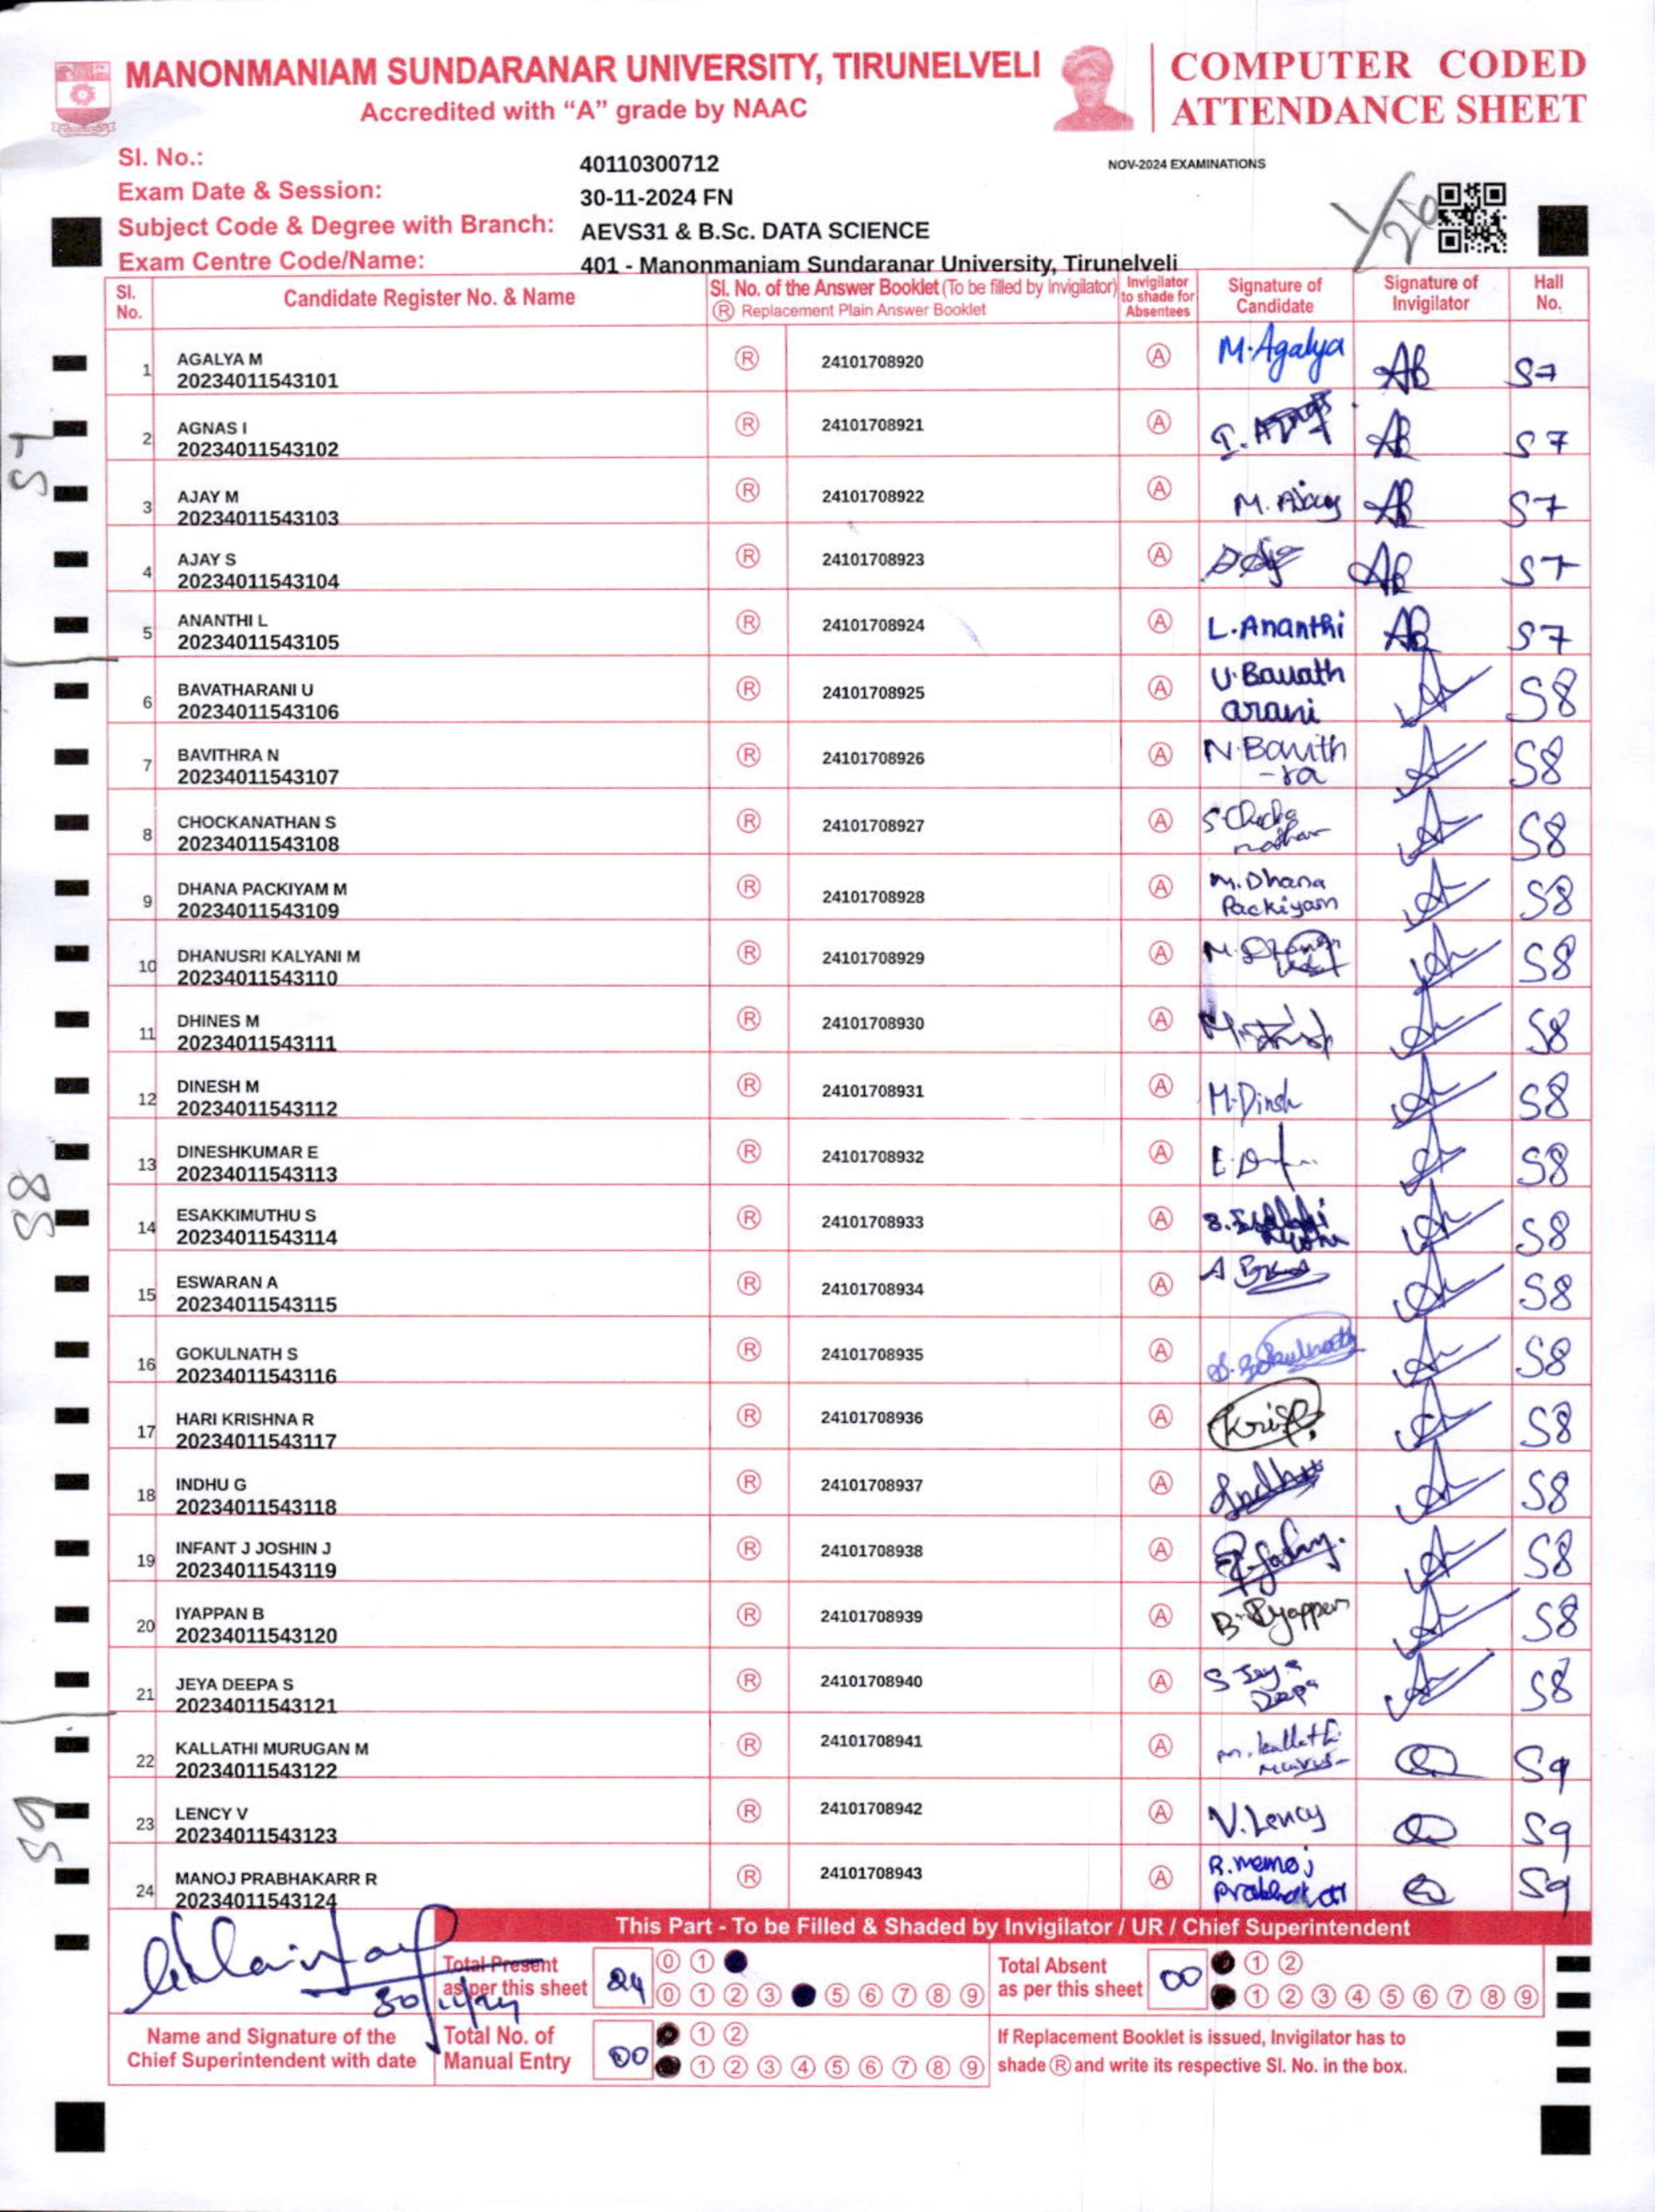 MANONMANIAM SUNDARANAR UNIVERSITY, TIRUNELVELI
Accredited with “A” grade by NAAC
COMPUTER CODED
ATTENDANCE SHEET
Sl. No.: 40110300712 NOV-2024 EXAMINATIONS
Exam Date & Session: 30-11-2024 FN
Subject Code & Degree with Branch: AEVS31 & B.Sc. DATA SCIENCE
Exam Centre Code/Name: 401 - Manonmaniam Sundaranar University, Tirunelveli
Sl. No. Candidate Register No. & Name Sl. No. of the Answer Booklet (To be filled by Invigilator) Ⓡ Replacement Plain Answer Booklet Invigilator to shade for Absentees Signature of Candidate Signature of Invigilator Hall No.
1 AGALYA M 20234011543101 Ⓡ 24101708920 Ⓐ M.Agalya AB S7
2 AGNAS I 20234011543102 Ⓡ 24101708921 Ⓐ AB S7
3 AJAY M 20234011543103 Ⓡ 24101708922 Ⓐ M. Ajay AB S7
4 AJAY S 20234011543104 Ⓡ 24101708923 Ⓐ AB S7
5 ANANTHI L 20234011543105 Ⓡ 24101708924 Ⓐ L.Ananthi AB S7
6 BAVATHARANI U 20234011543106 Ⓡ 24101708925 Ⓐ U.Bavath arani S8
7 BAVITHRA N 20234011543107 Ⓡ 24101708926 Ⓐ N.Bavith -ra S8
8 CHOCKANATHAN S 20234011543108 Ⓡ 24101708927 Ⓐ S8
9 DHANA PACKIYAM M 20234011543109 Ⓡ 24101708928 Ⓐ M.Dhana Packiyam S8
10 DHANUSRI KALYANI M 20234011543110 Ⓡ 24101708929 Ⓐ S8
11 DHINES M 20234011543111 Ⓡ 24101708930 Ⓐ S8
12 DINESH M 20234011543112 Ⓡ 24101708931 Ⓐ M.Dinsh S8
13 DINESHKUMAR E 20234011543113 Ⓡ 24101708932 Ⓐ S8
14 ESAKKIMUTHU S 20234011543114 Ⓡ 24101708933 Ⓐ S8
15 ESWARAN A 20234011543115 Ⓡ 24101708934 Ⓐ S8
16 GOKULNATH S 20234011543116 Ⓡ 24101708935 Ⓐ S.Gokulnath S8
17 HARI KRISHNA R 20234011543117 Ⓡ 24101708936 Ⓐ S8
18 INDHU G 20234011543118 Ⓡ 24101708937 Ⓐ Indhu S8
19 INFANT J JOSHIN J 20234011543119 Ⓡ 24101708938 Ⓐ S8
20 IYAPPAN B 20234011543120 Ⓡ 24101708939 Ⓐ B.Iyappan S8
21 JEYA DEEPA S 20234011543121 Ⓡ 24101708940 Ⓐ S Jeya Deepa S8
22 KALLATHI MURUGAN M 20234011543122 Ⓡ 24101708941 Ⓐ S9
23 LENCY V 20234011543123 Ⓡ 24101708942 Ⓐ V.Lency S9
24 MANOJ PRABHAKARR R 20234011543124 Ⓡ 24101708943 Ⓐ S9
S7
S8
S9
This Part - To be Filled & Shaded by Invigilator / UR / Chief Superintendent
30/11/24
Name and Signature of the
Chief Superintendent with date
Total Present as per this sheet 24
0 1
0 1 2 3 5 6 7 8 9
Total Absent as per this sheet 00
1 2
1 2 3 4 5 6 7 8 9
Total No. of Manual Entry 00
1 2
1 2 3 4 5 6 7 8 9
If Replacement Booklet is issued, Invigilator has to
shade Ⓡ and write its respective Sl. No. in the box.